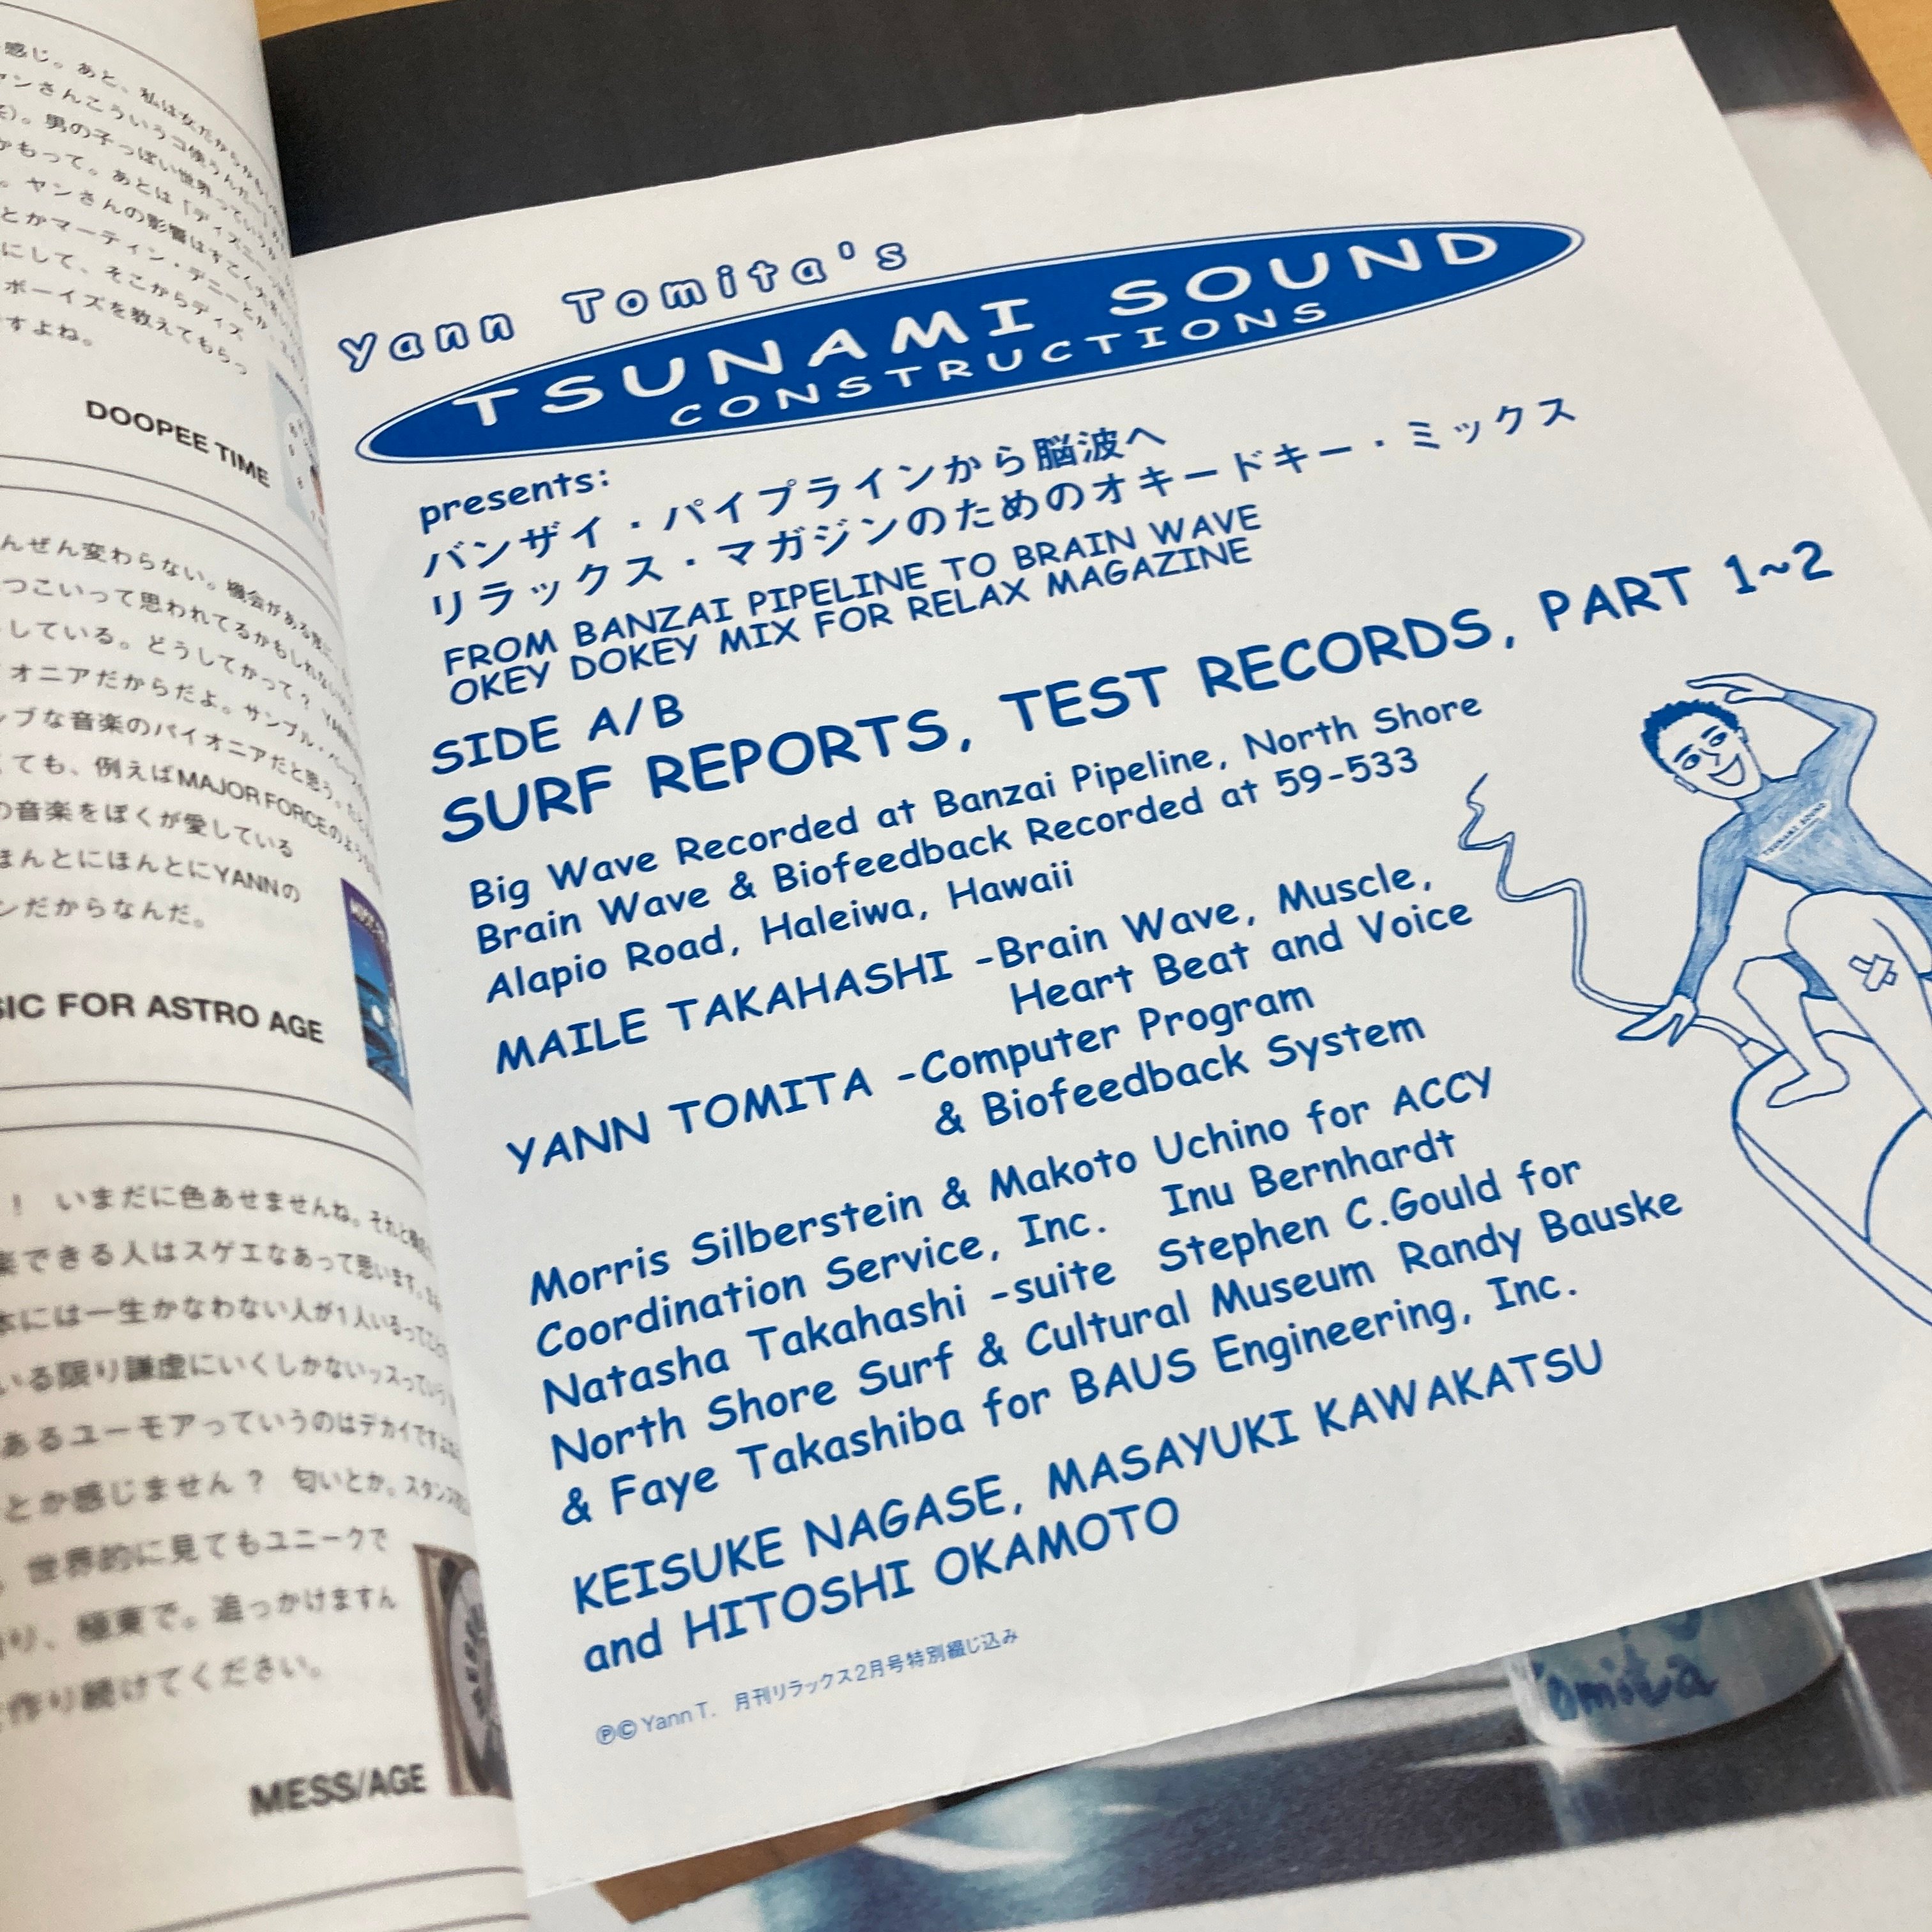 感じ。あと、私は女だからかも
ヤンさんこういうコ使うんだー
。男の子っぽい世界っていうか
かもって。あとは「ディズニー
。ヤンさんの影響はすごく大きい
とかマーティン・デニーとか、
にして、そこからディズ
ボーイズを教えてもらっ
すよね。
DOOPEE TIME
んぜん変わらない。機会がある度に
つこいって思われてるかもしれない
している。どうしてかって? YANN
オニアだからだよ。サンプル・
ップな音楽のパイオニアだと思う。
ても、例えばMAJOR FORCEのような
の音楽をぼくが愛している
ほんとにほんとにYANNの
ンだからなんだ。
SIC FOR ASTRO AGE
! いまだに色あせませんね。それと
楽できる人はスゲエなあって思います。
本には一生かなわない人が1人いるって
いる限り謙虚にいくしかないッスっていう
あるユーモアっていうのはデカイですよ
とか感じません? 匂いとか。スタンス
世界的に見てもユニークで
り、極東で。追っかけますん
作り続けてください。
MESS/AGE
Yann Tomita's
TSUNAMI SOUND
CONSTRUCTIONS
presents:
バンザイ・パイプラインから脳波へ
リラックス・マガジンのためのオキードキー・ミックス
FROM BANZAI PIPELINE TO BRAIN WAVE
OKEY DOKEY MIX FOR RELAX MAGAZINE
SIDE A/B
SURF REPORTS, TEST RECORDS, PART 1~2
Big Wave Recorded at Banzai Pipeline, North Shore
Brain Wave & Biofeedback Recorded at 59-533
Alapio Road, Haleiwa, Hawaii
MAILE TAKAHASHI -Brain Wave, Muscle,
Heart Beat and Voice
YANN TOMITA -Computer Program
& Biofeedback System
Morris Silberstein & Makoto Uchino for ACCY
Coordination Service, Inc. Inu Bernhardt
Natasha Takahashi -suite Stephen C.Gould for
North Shore Surf & Cultural Museum Randy Bauske
& Faye Takashiba for BAUS Engineering, Inc.
KEISUKE NAGASE, MASAYUKI KAWAKATSU
and HITOSHI OKAMOTO
℗© Yann T. 月刊リラックス2月号特別綴じ込み
TSUNAMI SOUND
Tomita